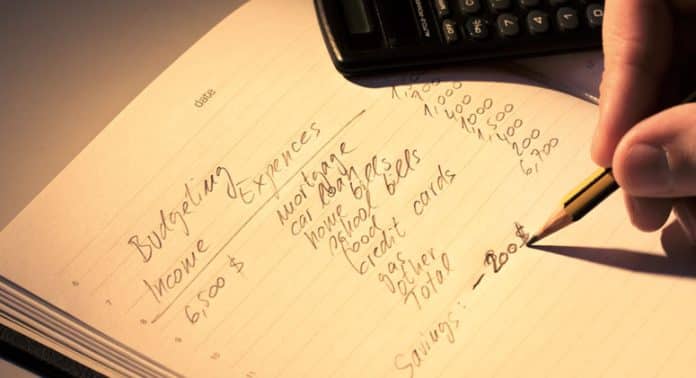 date
Budgeting
Income Expences
6,500 $
mortgage
car loan
home bills
school bills
food
credit cards
gas
other
Total
900
1,000
400
500
200
6,700
Savings: - 200 $
6
7
8
10
11